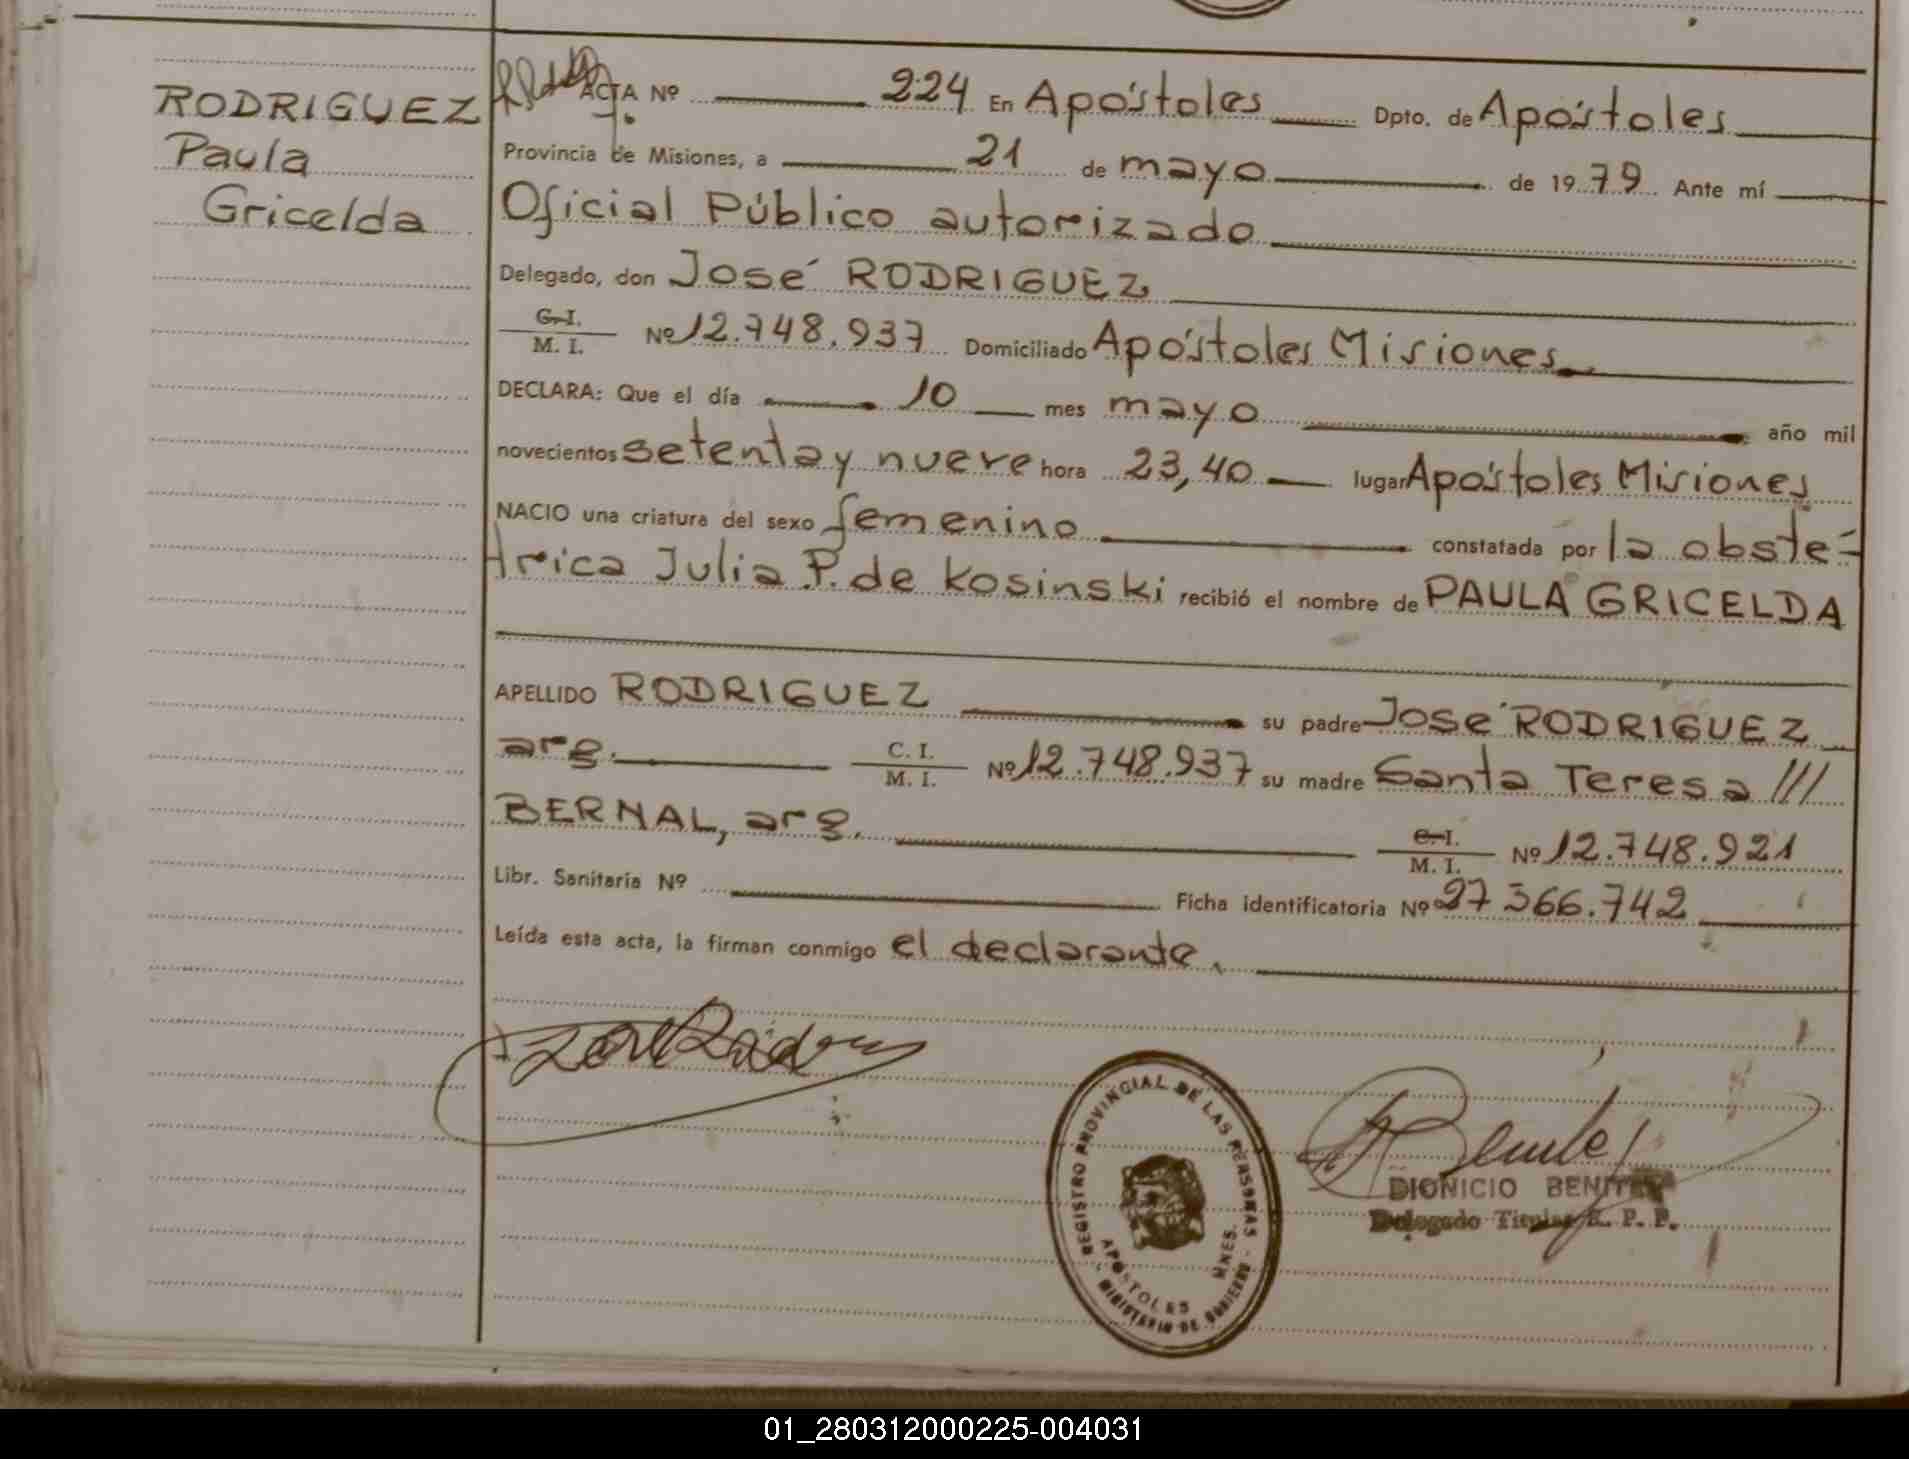 RODRIGUEZ
Paula
Gricelda
ACTA Nº 224 En Apóstoles Dpto. de Apóstoles
Provincia de Misiones, a 21 de mayo de 1979 Ante mí
Oficial Público autorizado
Delegado, don José RODRIGUEZ
C. I.
M. I. Nº 12.748.937 Domiciliado Apóstoles Misiones
DECLARA: Que el día 10 mes mayo año mil
novecientos setenta y nueve hora 23,40 lugar Apóstoles Misiones
NACIO una criatura del sexo femenino constatada por la obsté-
trica Julia P. de Kosinski recibió el nombre de PAULA GRICELDA
APELLIDO RODRIGUEZ su padre José RODRIGUEZ
arg. C. I.
M. I. Nº 12.748.937 su madre Santa Teresa ///
BERNAL, arg. C. I.
M. I. Nº 12.748.921
Libr. Sanitaria Nº Ficha identificatoria Nº 27 366.742
Leída esta acta, la firman conmigo el declarante.
REGISTRO PROVINCIAL DE LAS PERSONAS
APÓSTOLES MNES.
MINISTERIO DE GOBIERNO
DIONICIO BENITEZ
Delegado Titular R. P. P.
01_280312000225-004031